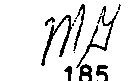 MG
185